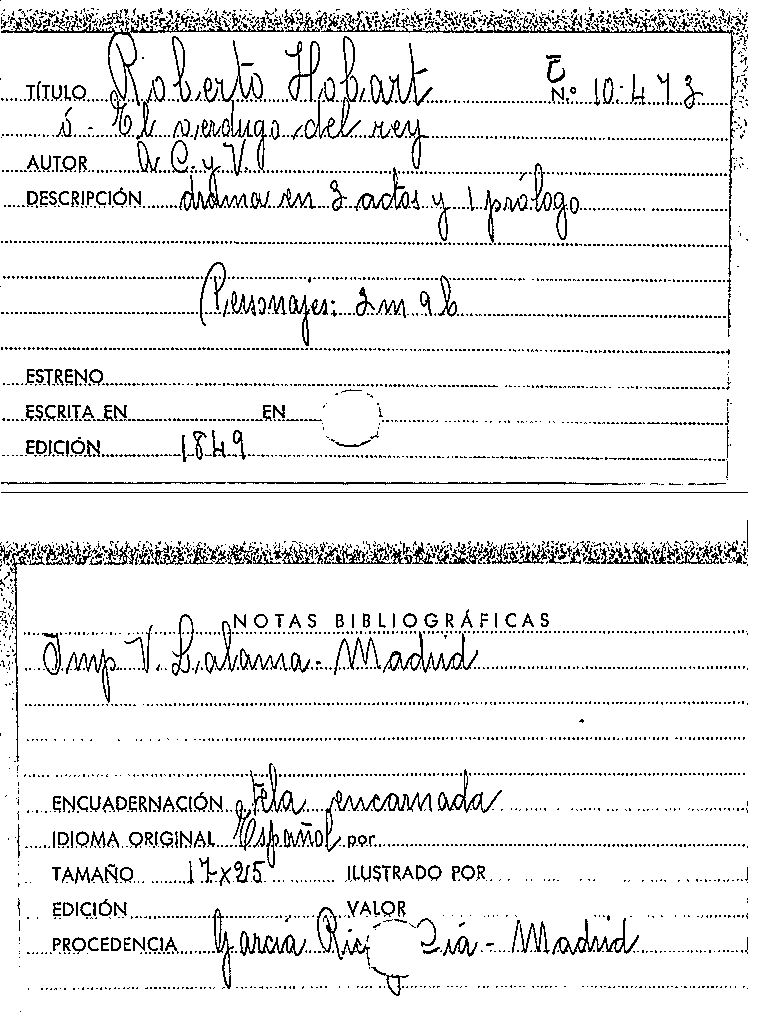 TÍTULO Roberto Hobart N.º 10.473
ó - El verdugo del rey
AUTOR A C. y V.
DESCRIPCIÓN drama en 3 actos y 1 prólogo
Personajes: 2 m 9 h
ESTRENO
ESCRITA EN EN
EDICIÓN 1849
NOTAS BIBLIOGRÁFICAS
Imp V. Lalama - Madrid
ENCUADERNACIÓN tela encarnada
IDIOMA ORIGINAL Español por
TAMAÑO 17x25 ILUSTRADO POR
EDICIÓN VALOR
PROCEDENCIA García - Madrid